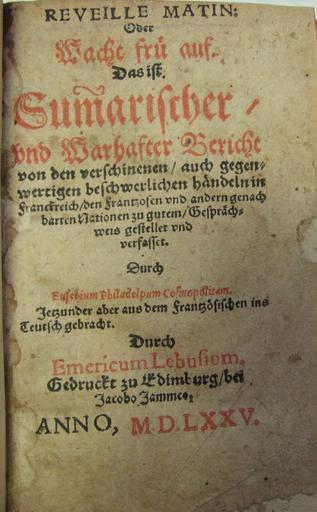 REVEILLE MATIN:
Oder
Wache frü auf.
Das ist,
Sum̃arischer /
vnd Warhaffter Bericht
von den verschinenen / auch gegen-
wertigen beschwerlichen händeln in
Franckreich / den Frantzosen vnd andern genach
barten Nationen zu gutem / Gespräch-
weis gestellet vnd
verfasset.
Durch
Eusebium Philadelpum Cosmopolitam.
Jetzunder aber aus dem Frantzösischen ins
Teutsch gebracht.
Durch
Emericum Lebusium.
Gedruckt zu Edimburg / bei
Jacobo Jammeo,
ANNO, M.D.LXXV.